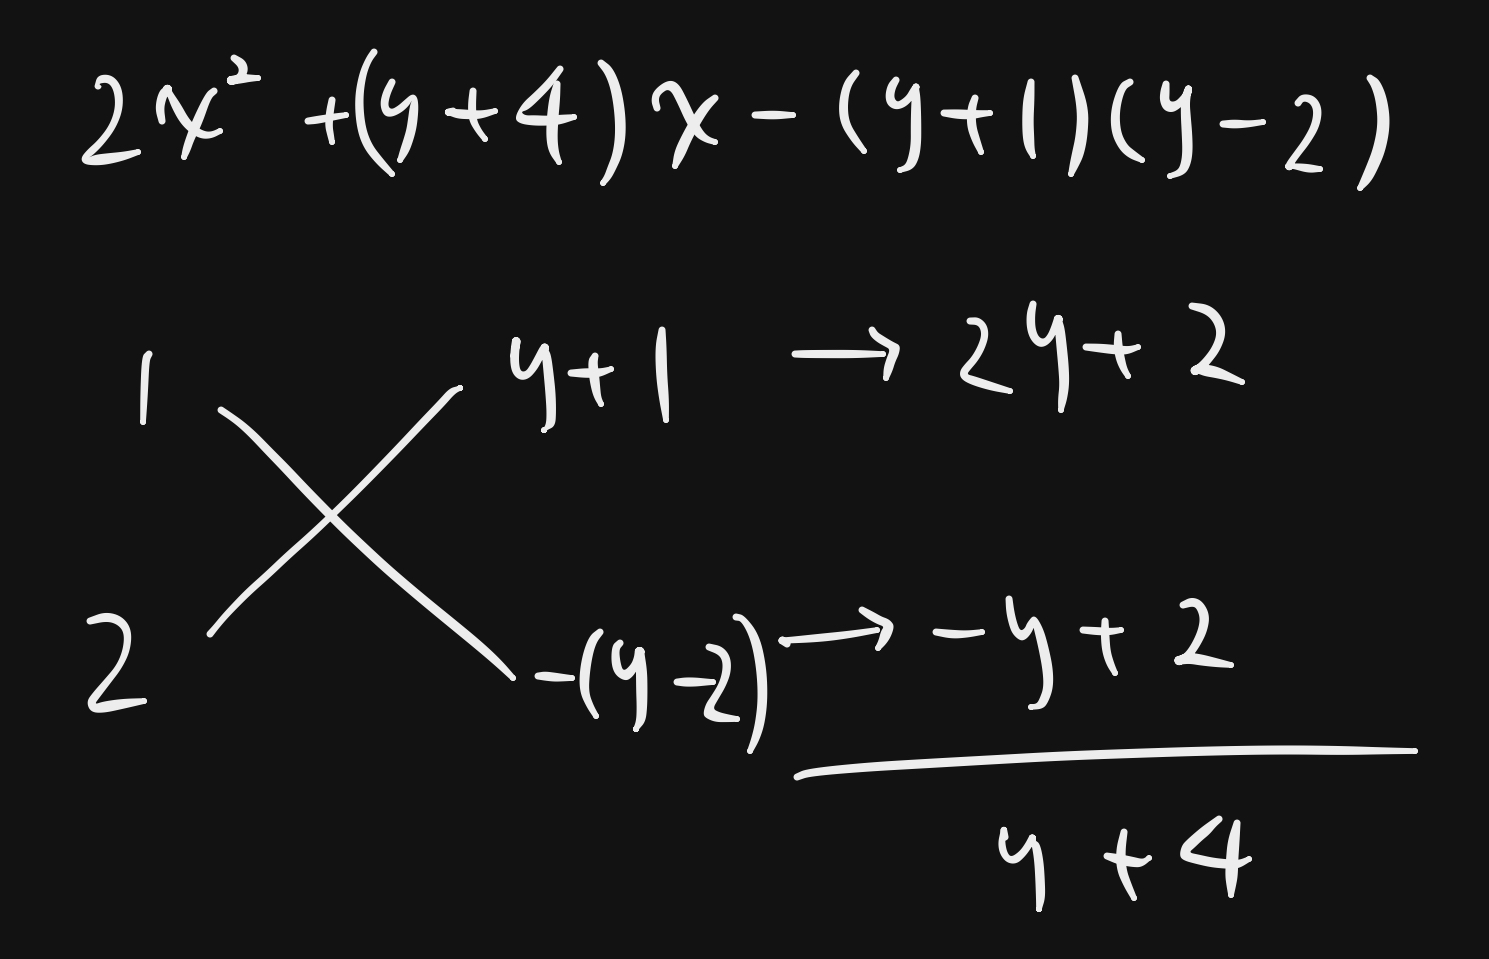 2x² + (y + 4)x - (y + 1)(y - 2)
1 y + 1 → 2y + 2
2 -(y - 2) → -y + 2
y + 4